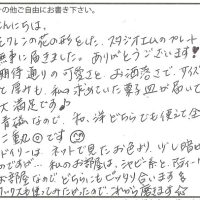 の他ご自由にお書き下さい。
こんにちは。
モクレンの花の形をした、スタジオエムのプレート
無事に届きました。ありがとうございます!
期待通りの可愛さと、お洒落さで、サイズ
も厚みも、私の求めていた菓子皿が届いて
大満足です♪
青磁なので、和、洋どちらでも使えて
二重丸◎です
ドイリーは、ネットで見たお色より、少し暗め
のですが、私のお部屋は、
お部屋なので、どちらにもピッタリ合います
たかったので、これから磨きます☆